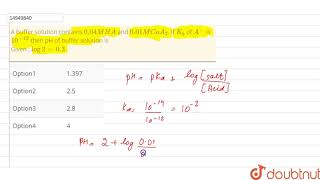 14949840
A buffer solution contains 0.04 M HA and 0.01 M CaA₂. If K_b of A⁻ is
10⁻¹² then pH of buffer solution is
Given, log 2 = 0.3.
Option1 1.397
Option2 2.5
Option3 2.8
Option4 4
pH = pKa + log [salt]/[Acid]
Ka = 10⁻¹⁴/10⁻¹² = 10⁻²
pH = 2 + log 0.01/
doubtnut